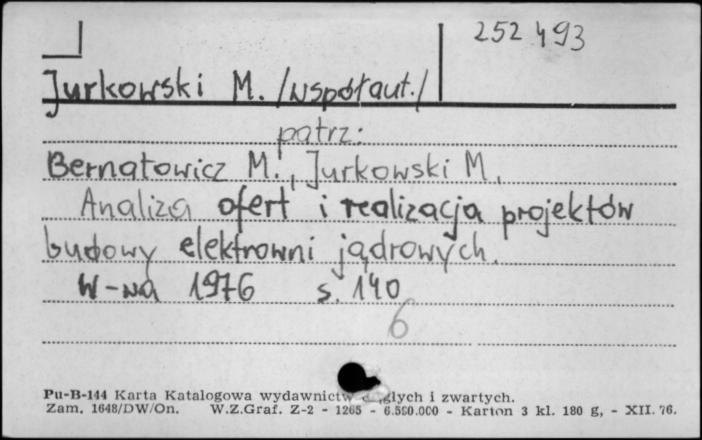 252 493
Jurkowski M. /współaut./
patrz:
Bernatowicz M., Jurkowski M.
Analiza ofert i realizacja projektów
budowy elektrowni jądrowych.
W-wa 1976 s. 140
6
Pu-B-144 Karta Katalogowa wydawnictw i zwartych.
Zam. 1648/DW/On. W.Z.Graf. Z-2 - 1265 - 6.500.000 - Karton 3 kl. 180 g, - XII. 76.